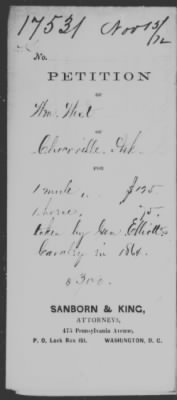 17531 Nov 13/72
No.
PETITION
OF
Wm. West
OF
Ark.
FOR
1 mule " $125.
1 horse, 175.
taken by Gen. Elliott's
Cavalry in 1864.
$300.
SANBORN & KING,
ATTORNEYS,
475 Pennsylvania Avenue,
P. O. Lock Box 60. WASHINGTON, D. C.